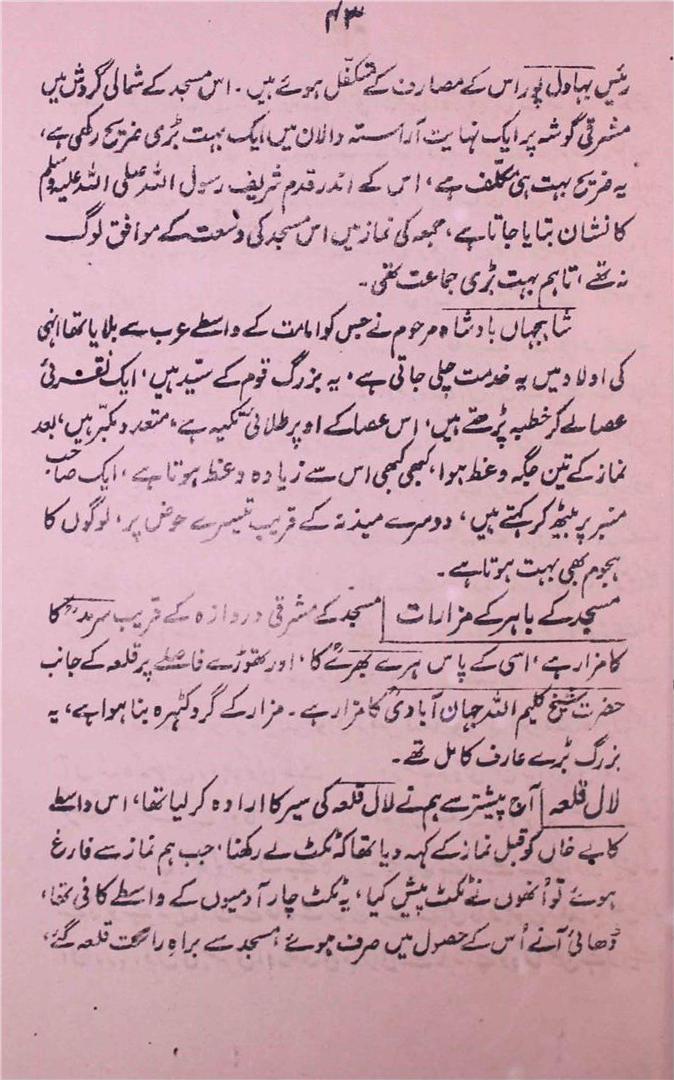 ۴۳
رئیس بہاولپور اس کے مصارف کے متکفّل ہوئے ہیں۔ اس مسجد کے شمالی گردش میں
مشرقی گوشہ پر ایک نہایت آراستہ دالان میں ایک بہت بڑی ضریح رکھی ہے،
یہ ضریح بہت ہی مکلّف ہے، اس کے اندر قدم شریف رسول اللہ صلی اللہ علیہ وسلم
کا نشان بتایا جاتا ہے، جمعہ کی نماز میں اس مسجد کی وسعت کے موافق لوگ
نہ تھے، تاہم بہت بڑی جماعت تھی۔
شاہجہاں بادشاہ مرحوم نے جس کو امامت کے واسطے عرب سے بلایا تھا انہی
کی اولاد میں یہ خدمت چلی جاتی ہے، یہ بزرگ قوم کے سیّد ہیں، ایک نقرئی
عصا لے کر خطبہ پڑھتے ہیں، اس عصا کے اوپر طلائی تکیہ ہے، متعدد مکبّر ہیں، بعد
نماز کے تین جگہ وعظ ہوا، کبھی کبھی اس سے زیادہ وعظ ہوتا ہے، ایک صاحب
منبر پر بیٹھ کر کہتے ہیں، دوسرے میذنہ کے قریب تیسرے حوض پر، لوگوں کا
ہجوم بھی بہت ہوتا ہے۔
مسجد کے باہر کے مزارات | مسجد کے مشرقی دروازہ کے قریب سرمدؒ کا
کا مزار ہے، اسی کے پاس ہرے بھرےؒ کا، اور تھوڑے فاصلے پر قلعہ کے جانب
حضرت شیخ کلیم اللہ جہان آبادیؒ کا مزار ہے۔ مزار کے گرد کٹہرہ بنا ہوا ہے، یہ
بزرگ بڑے عارف کامل تھے۔
لال قلعہ | آج پیشتر سے ہم نے لال قلعہ کی سیر کا ارادہ کر لیا تھا، اس واسطے
کالے خاں کو قبل نماز کے کہہ دیا تھا کہ ٹکٹ لے رکھنا، جب ہم نماز سے فارغ
ہوئے تو اُنھوں نے ٹکٹ پیش کیا، یہ ٹکٹ چار آدمیوں کے واسطے کافی تھا،
ڈھائی آنے اُس کے حصول میں صرف ہوئے، مسجد سے براہِ راست قلعہ گئے،